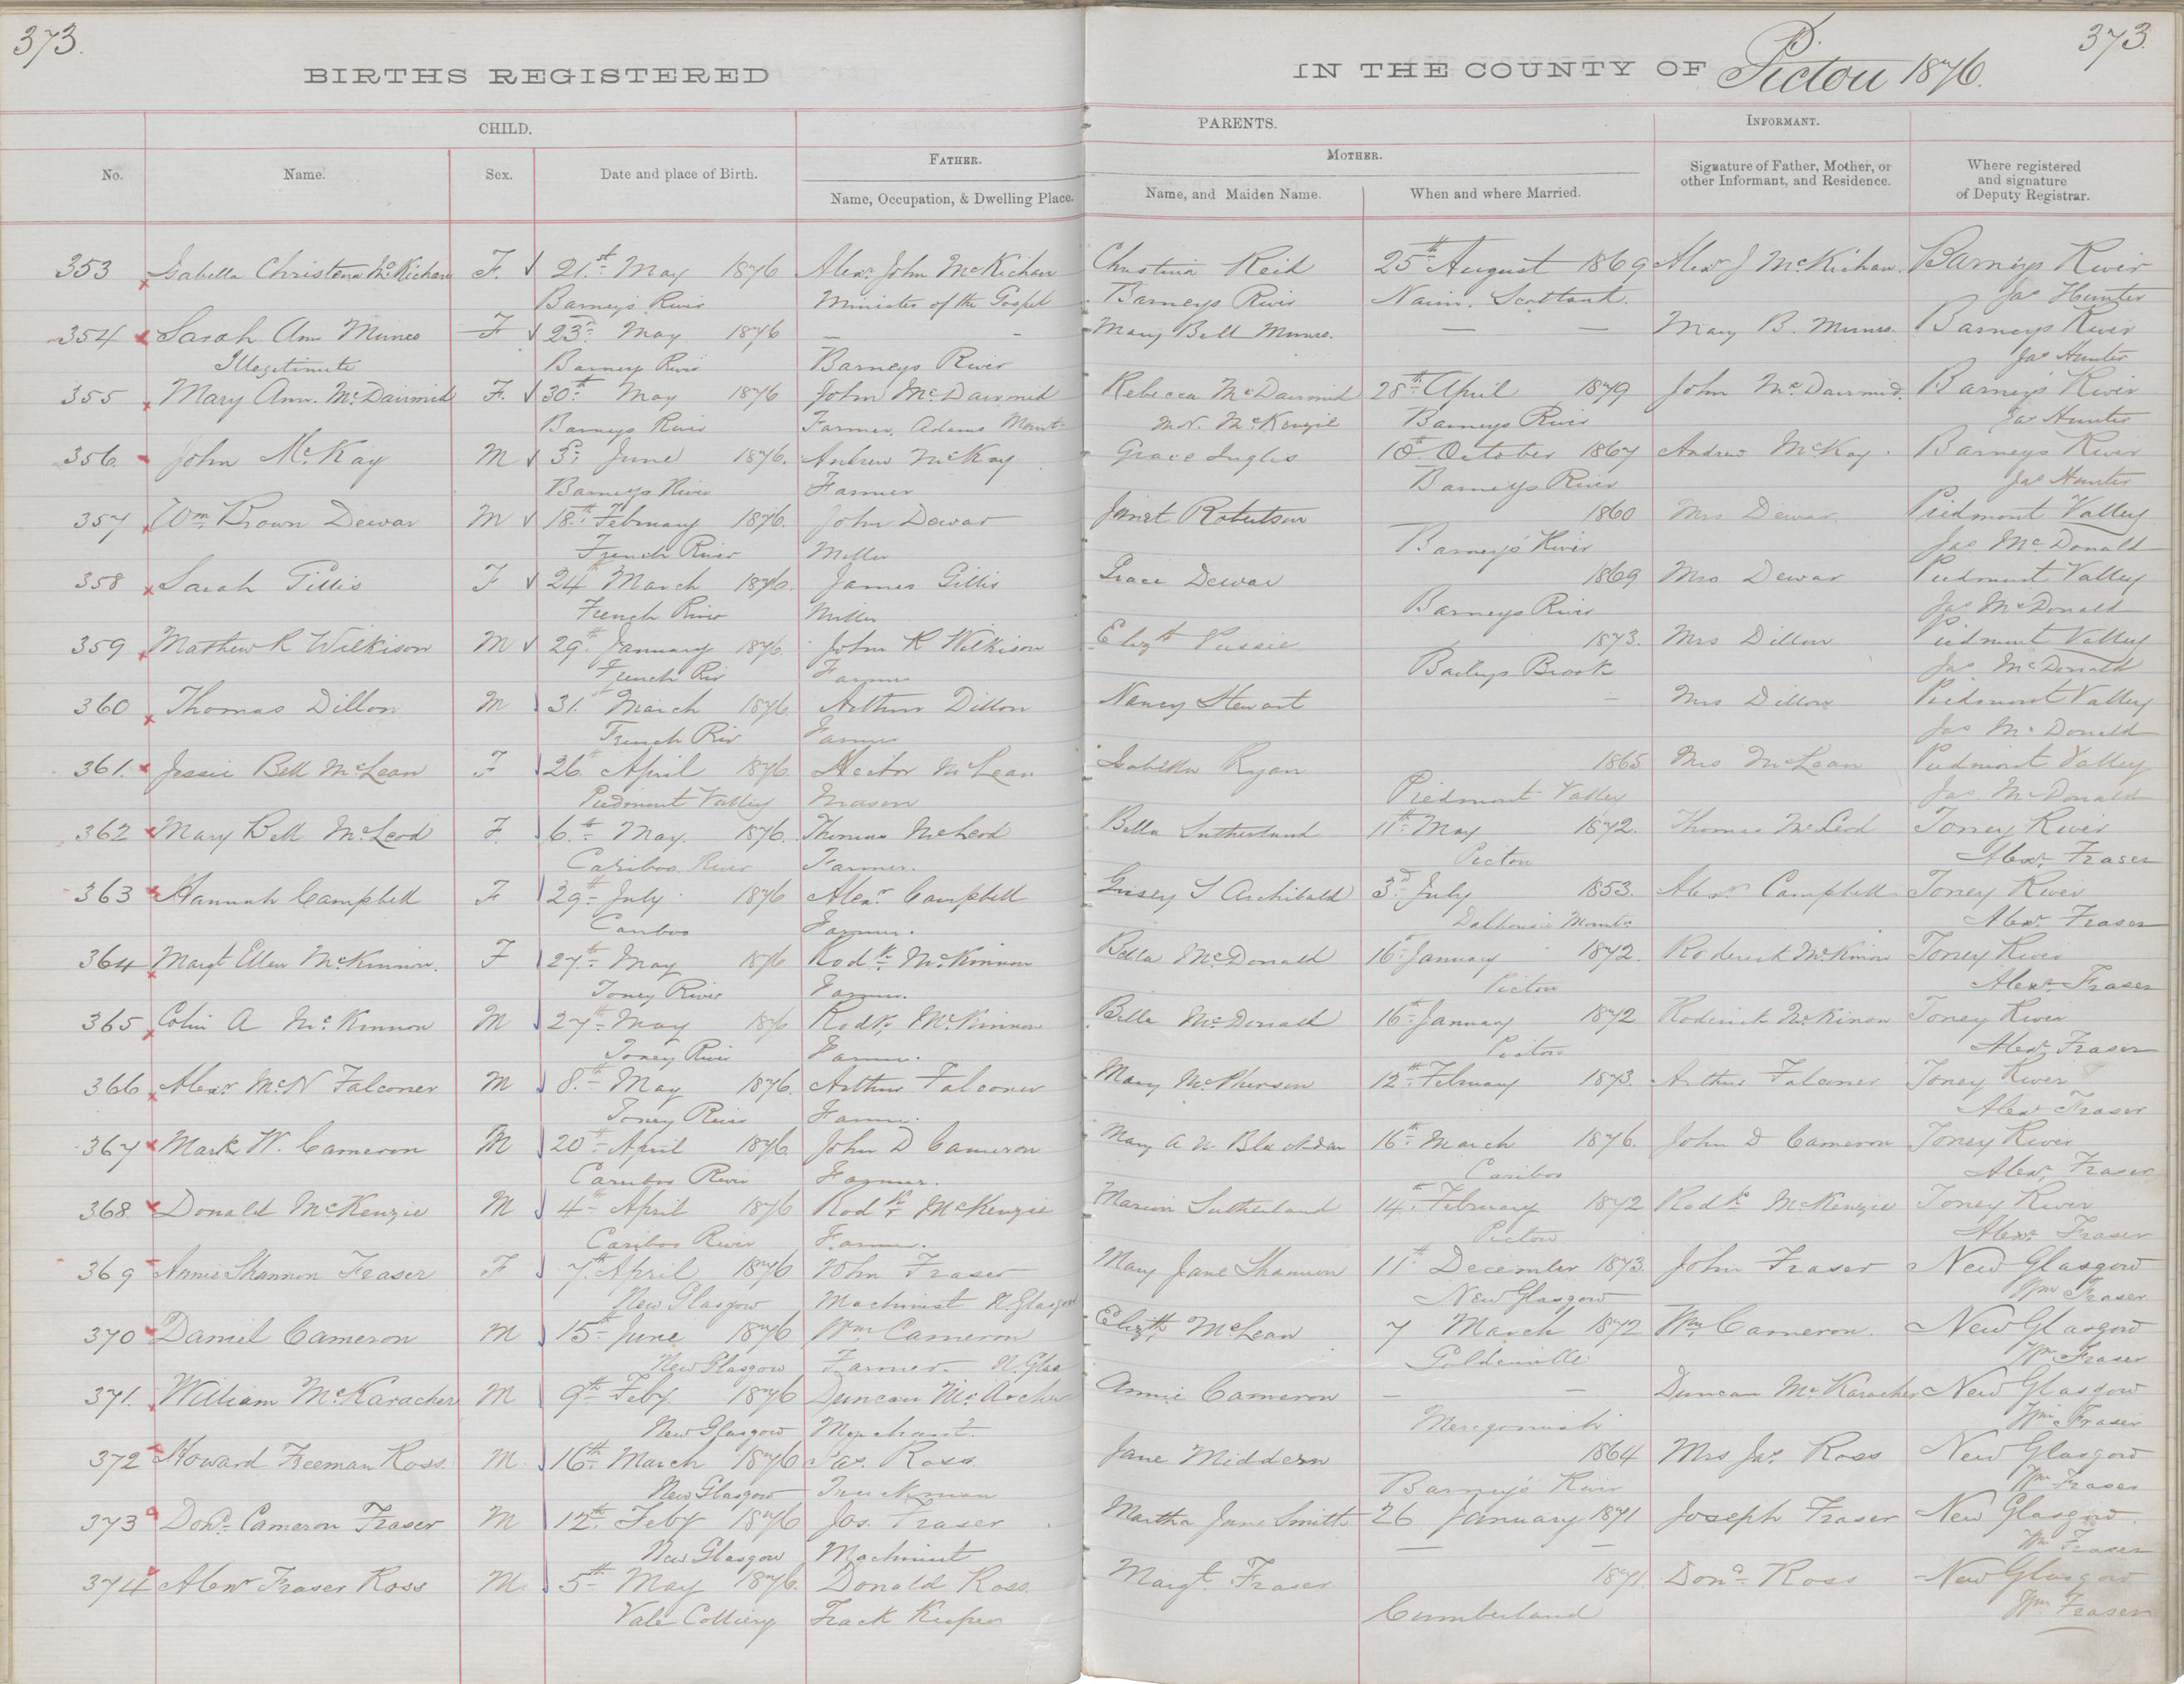 373. 373.
BIRTHS REGISTERED IN THE COUNTY OF Pictou 1876.
CHILD. PARENTS. INFORMANT.
FATHER. MOTHER.
No. Name. Sex. Date and place of Birth. Name, Occupation, & Dwelling Place. Name, and Maiden Name. When and where Married. Signature of Father, Mother, or other Informant, and Residence. Where registered and signature of Deputy Registrar.
353 Isabella Christena McKichan F. 21st May 1876 Alexr John McKichan Christina Reid 25th August 1869 Alexr J McKichan. Barneys River
Barneys River Minister of the Gospel Barneys River Nairn. Scotland. Jas Hunter
354 Sarah Ann Munro F 23rd May 1876 — Mary Bell Munro. — — Mary B. Munro. Barneys River
Illegitimate Barneys River Barneys River Jas Hunter
355 Mary Ann. McDairmid F. 30th May 1876 John McDairmid Rebecca McDairmid 28th April 1879 John McDairmid. Barneys River
Barneys River Farmer, Adams Mount. M.N. McKenzie Barneys River Jas Hunter
356. John McKay M 3rd June 1876. Andrew McKay Grace Inglis 10th October 1867 Andrew McKay. Barneys River
Barneys River Farmer Barneys River Jas Hunter
357 Wm Brown Dewar M 18th February 1876. John Dewar Janet Robertson 1860 Mrs Dewar Piedmont Valley
French River Miller Barneys River Jas McDonald
358 Sarah Gillis F 24th March 1876. James Gillis Grace Dewar 1869 Mrs Dewar Piedmont Valley
French River Miller Barneys River Jas McDonald
359 Mathew R Wilkison M 29th January 1876. John R Wilkison Elizth 1873. Mrs Dillon Piedmont Valley
French Riv Farmer Baileys Brook Jas McDonald
360 Thomas Dillon M 31st March 1876. Arthur Dillon Nancy Stewart — Mrs Dillon Piedmont Valley
French Riv Farmer Jas McDonald
361. Jessie Bell McLean F 26th April 1876. Hector McLean Isabella Ryan 1865 Mrs McLean Piedmont Valley
Piedmont Valley Mason Piedmont Valley Jas McDonald
362 Mary Bell McLeod F. 6th May. 1876. Thomas McLeod Bella Sutherland 11th May 1872. Thomas McLeod Toney River
Cariboo River Farmer. Pictou Alexr Fraser
363 Hannah Campbell F 29th July 1876 Alexr Campbell Grisey S Archibald 3rd July 1853. Alexr Campbell Toney River
Cariboo Farmer. Dalhousie Mount. Alexr Fraser
364 Margt Ellen McKinnon. F 27th May 1876 Rodk McKinnon Bella McDonald 16th January 1872. Roderick McKinon Toney River
Toney River Farmer. Pictou Alexr Fraser
365 Colin A McKinnon M 27th May 1876 Rodk McKinnon Bella McDonald 16th January 1872 Roderick McKinon Toney River
Toney River Farmer. Pictou Alexr Fraser
366 Alexr McN Falconer M 8th May 1876. Arthur Falconer Mary McPherson 12th February 1873. Arthur Falconer Toney River
Toney River Farmer. Alexr Fraser
367 Mark W. Cameron M 20th April 1876. John D Cameron Mary A 16th March 1876. John D Cameron Toney River
Cariboo River Farmer. Cariboo Alexr Fraser
368 Donald McKenzie M 4th April 1876 Rodk McKenzie Marion Sutherland 14th February 1872 Rodk McKenzie Toney River
Cariboo River Farmer. Pictou Alexr Fraser
369 Annie Shannon Fraser F 7th April 1876 John Fraser Mary Jane Shannon 11th December 1873. John Fraser New Glasgow
New Glasgow Machinist N. Glasgow New Glasgow Wm Fraser
370 Daniel Cameron M 15th June 1876 Wm Cameron Elizth McLean 7 March 1872 Wm Cameron. New Glasgow
New Glasgow Farmer. N. Glas Goldenville Wm Fraser
371. William McKaracher M 9th Feby 1876 Duncan Annie Cameron — — Duncan McKaracher New Glasgow
New Glasgow Merchant. Merigomish Wm Fraser
372 Howard Freeman Ross. M. 16th March 1876 Jas. Ross. Jane Middern 1864 Mrs Jas. Ross New Glasgow
New Glasgow Truckman Barney's River Wm Fraser
373 Dond Cameron Fraser M 12th Feby 1876 Jos. Fraser Martha Jane Smith 26 January 1871 Joseph Fraser New Glasgow.
New Glasgow Machinist — — Wm Fraser
374 Alexr Fraser Ross M. 5th May 1876. Donald Ross. Margt Fraser 1871. Dond Ross New Glasgow
Vale Colliery Track Keeper Cumberland Wm Fraser